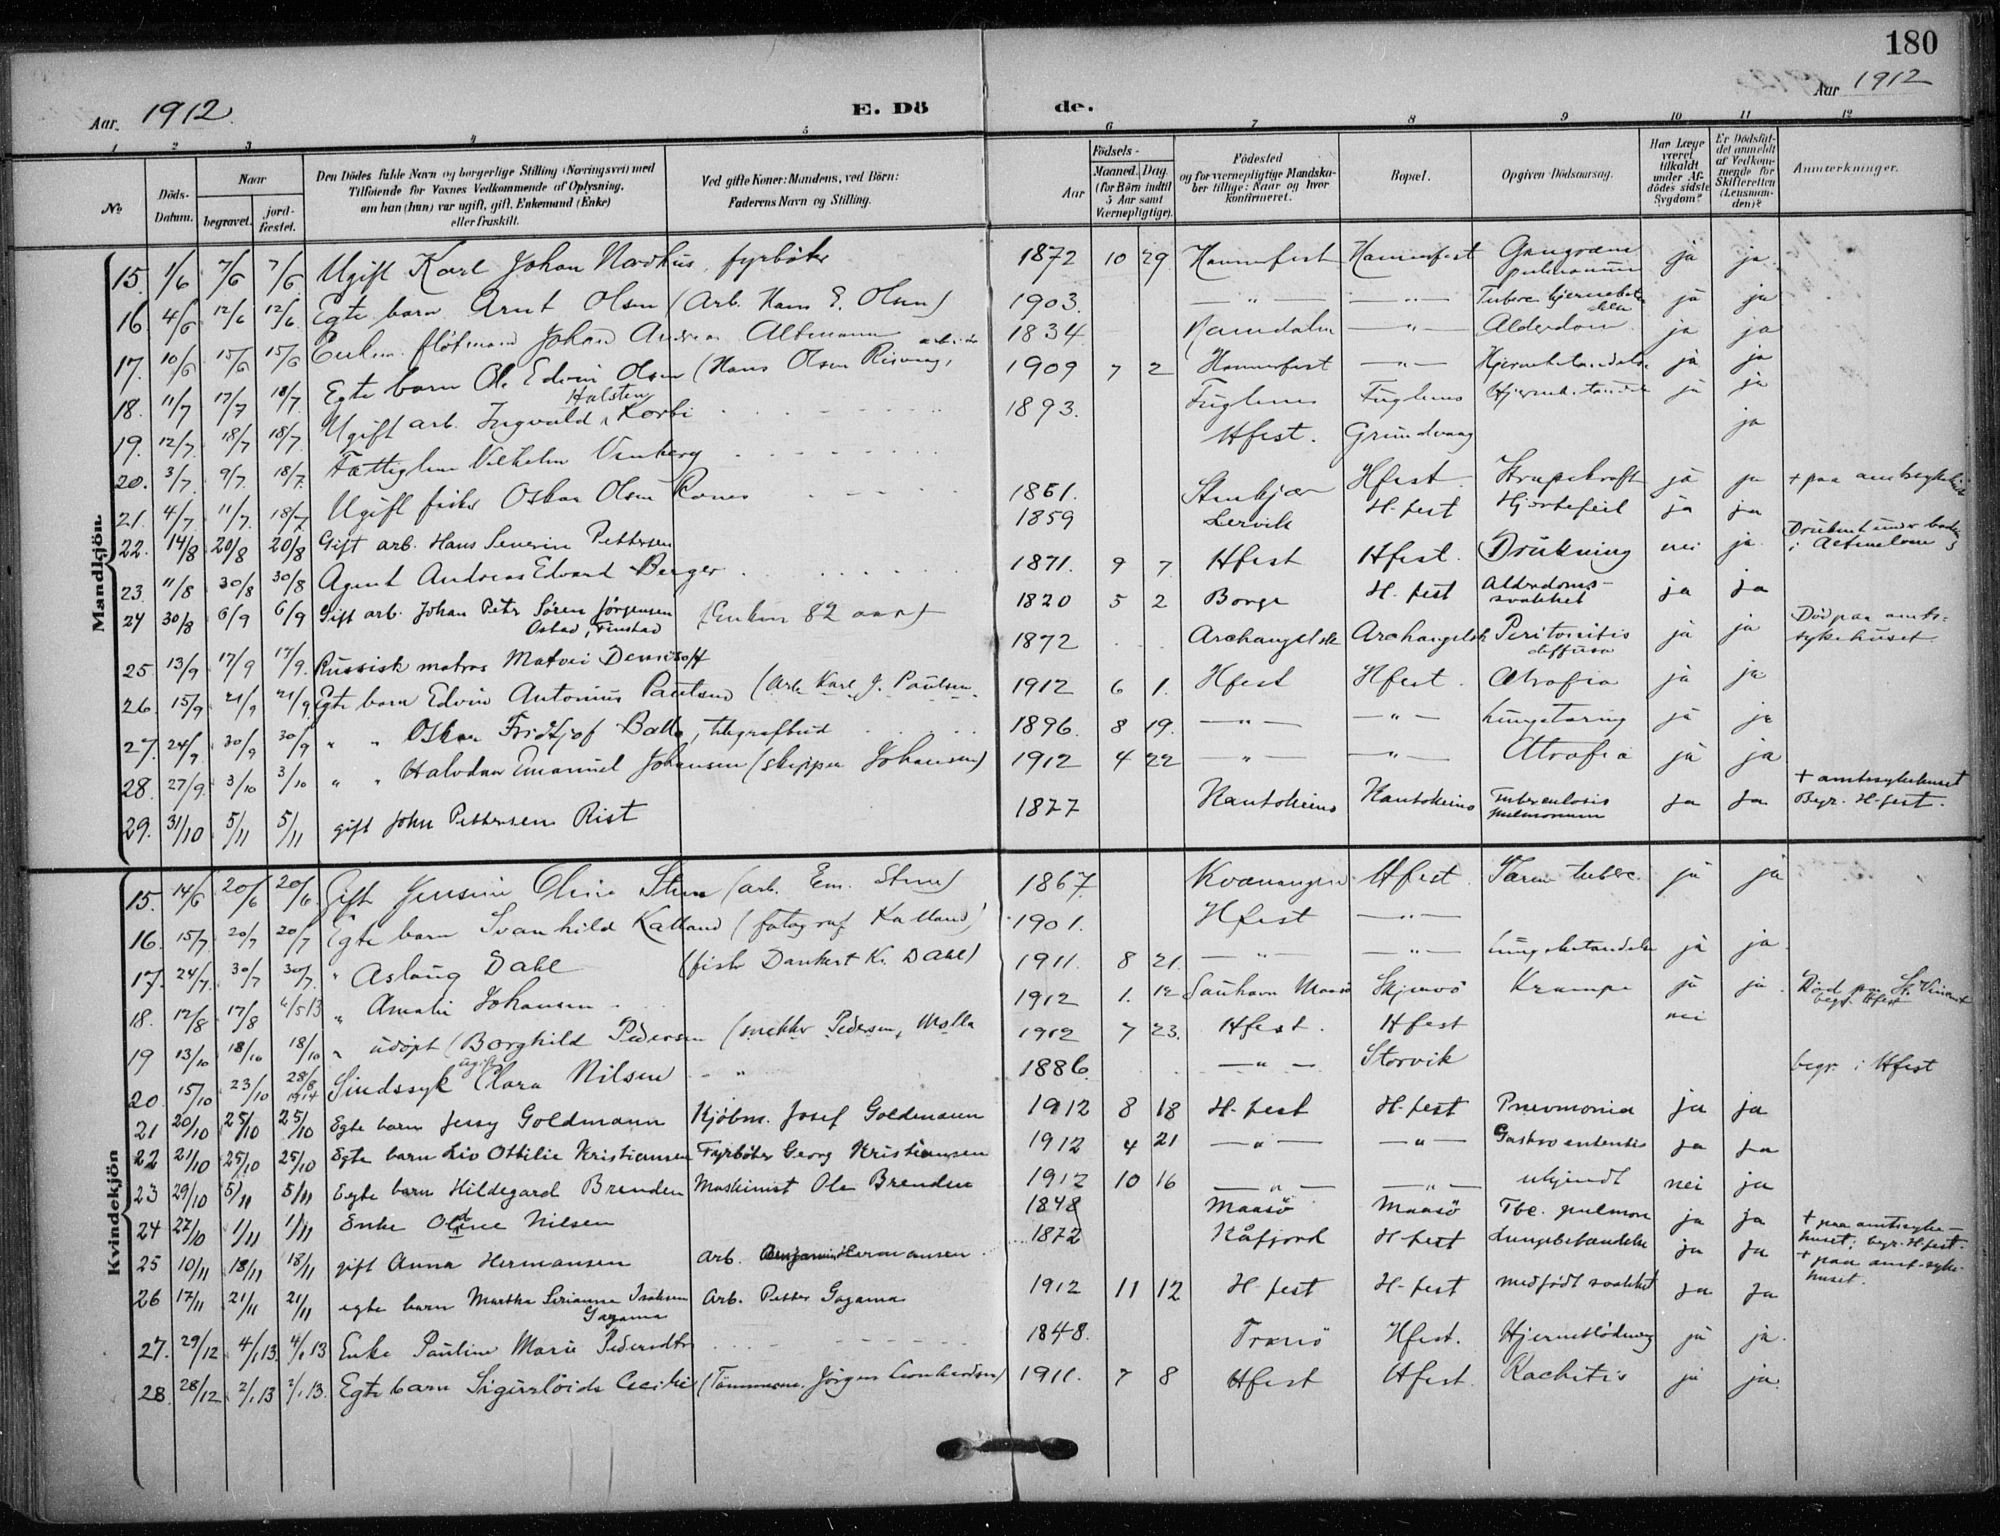 180
Aar. 1912.
E. Dö de.
Aar 1912
1 2 3 4 5 6 7 8 9 10 11 12
No
Döds-Datum.
Naar
begravet.
jord-fæstet.
Den Dödes fulde Navn og borgerlige Stilling (Næringsvei) med
Tilföiende for Voxnes Vedkommende af Oplysning,
om han (hun) var ugift, gift, Enkemand (Enke)
eller fraskilt.
Ved gifte Koner: Mandens, ved Börn:
Faderens Navn og Stilling.
Födsels-
Aar
Maaned. Dag.
(for Börn indtil
5 Aar samt
Værnepligtige).
Födested
og for værnepligtige Mandska-
ber tillige: Naar og hvor
konfirmeret.
Bopæl.
Opgiven Dödsaarsag.
Har Læge
været
tilkaldt
under Af-
dödes sidste
Sygdom?
Er Dödsfal-
det anmeldt
af Vedkom-
mende for
Skifteretten
(Lensman-
den)?
Anmærkninger.
Mandkjön.
15. 1/6 7/6 7/6 Ugift Karl Johan Nordhus, fyrbøter 1872 10 29 Hammerfest Hammerfest Gangræna pulmonum ja ja
16 4/6 12/6 12/6 Egte barn Arnt Olsen (Arb. Hans E. Olsen) 1903. — " — — " — Tuberc. ja ja
17. 10/6 15/6 15/6 Enkem. fløtmand Johan Andreas Altmann 1834 Namdalen — " — Alderdom ja ja
18. 11/7 17/7 18/7 Egte barn Ole Edvin Olsen (Hans Olsen 1909 7 2 Hammerfest — " — Hjernebetændelse ja ja
19. 12/7 18/7 18/7 Ugift arb. Ingvald Halsten Korbi 1893. Fuglenes Fuglenes Hjernebetændelse ja ja
20. 3/7 9/7 18/7 Fattiglem Vilhelm Vinberg Hfest. Grundvaag ja
21. 4/7 11/7 18/7 Ugift fisker Oskar Olsen 1861. Stenkjær Hfest. Strupekræft ja ja + paa amtsykehus
22. 14/8 20/8 20/8 Gift arb. Hans Severin Pettersen 1859 Lervik H-fest Hjertefeil ja ja
23. 11/8 30/8 30/8 Agent Andreas Edvard Berger 1871. 9 7 Hfest Hfest. Drukning nei ja Druknet under
24 30/8 6/9 6/9 Gift arb. Johan Peter Søren Jørgensen
Ostad, Finstad (Enkem 82 aar) 1820 5 2 Borge H-fest Alderdoms-
svakhet ja ja
25. 13/9 17/9 17/9. Russisk matros Matvei Denisoff 1872 Archangelsk Archangelsk Peritonitis
diffusa ja ja Død paa amts-
sykehuset
26. 15/9 21/9 21/9. Egte barn Edvin Antonius Paulsen (Arb. Karl J. Paulsen. 1912 6 1. Hfest Hfest. Atrofia ja ja
27. 24/9 30/9 30/9 " " Oskar Fridtjof Balto, telegrafbud 1896. 8 19. — " — — " — Lungetæring ja ja
28. 27/9. 3/10 3/10 " " Halvdan Emanuel Johansen (skipper Johansen) 1912 4 22 — " — — " — Atrofia ja ja
29. 31/10 5/11 5/11 gift John Pettersen Rist 1877 Kautokeino Kautokeino Tuberculosis
pulmonum ja ja + amtssykehuset
Begr. H-fest.
Kvindekjön
15. 14/6 20/6 20/6. Gift Jensine Oline Steen (arb. Em. Steen) 1867. Kvænangen Hfest. Tarm tuberc. ja ja
16. 15/7. 20/7 20/7 Egte barn Svanhild Kalland (fotograf Kalland) 1901. Hfest — " —
17. 24/7. 30/7 30/7. " Aslaug Dahl (fisk. Dankert Kr. Dahl) 1911. 8 21. — " — — " — Lungebetændelse ja ja
18. 12/8 17/8 4/5 13 " Amalie Johansen 1912 1. 12 Sauhavn Maasø Skjervø Krampe ja ja. Død paa St. Vincent
begr. Hfest
19 13/10 18/10 18/10 " udøpt (Borghild Pedersen (snekker Pedersen, Molla 1912 7 23. Hfest. Hfest nei
20. 15/10 23/10 28/8 1914 Sindssyk ugift Clara Nilsen - " 1886. — " — Storvik begr. i Hfest
21 20/10 25/10 25/10 Egte barn Jessy Goldmann Kjøbm. Josef Goldmann 1912 8 18 H-fest H-fest Pnevmonia ja ja
22 21/10 25/10 25/10 Egte barn Liv Ottilie Kristiansen Fyrbøter Georg Kristiansen 1912 4 21 — " — — " — Gastro enteritis ja ja
23 29/10 5/11 5/11 Egte barn Hildegard Brenden Maskinist Ole Brenden 1912 10 16 — " — — " — ukjendt nei ja
24 27/10 1/11 1/11 Enke Oldine Nilsen 1848 Maasø Maasø Tbc. pulmon ja ja + paa amtssyke-
huset; begr. H-fest.
25 10/11 18/11 18/11 gift Anna Hermansen Arb. Benjamin Hermansen 1872 Kåfjord H-fest Lungebetændelse ja ja + paa amt-syke-
huset.
26 17/11 21/11 21/11 egte barn Martha Sirianna Isaksen
Gagama Arb. Petter Gagama 1912 11 12 H-fest H-fest medfødt svakhet ja ja
27. 29/12 4/1 13. 4/1 13 Enke Pauline Marie Pedersdtr. 1848. Tromsø Hfest. Hjerneblødning ja ja.
28. 28/12 2/1 13 2/1 13. Egte barn Cecilie (Tømmerm. Jørgen 1911. 7 8 Hfest Hfest. Rachitis ja ja.